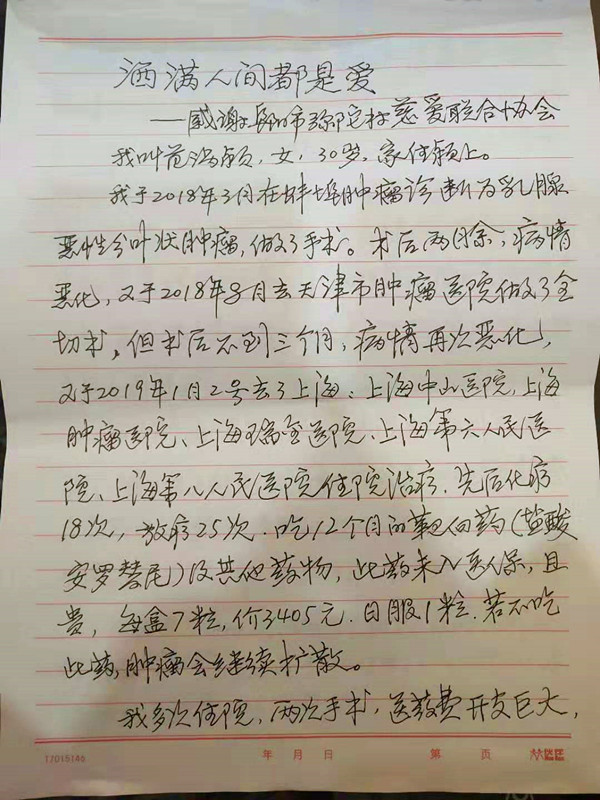 洒满人间都是爱
——感谢阜阳市弥陀村慈爱联合协会
我叫苗鸿颖,女,30岁,家住颍上。
我于2018年3月在蚌埠肿瘤诊断为乳腺
恶性分叶状肿瘤,做了手术。术后两月余,病情
恶化,又于2018年8月去天津市肿瘤医院做了全
切术,但术后不到三个月,病情再次恶化,
又于2019年1月2号去了上海:上海中山医院、上海
肿瘤医院、上海瑞金医院、上海第六人民医
院、上海第八人民医院住院治疗.先后化疗
18次,放疗25次.吃12个月的靶向药(盐酸
安罗替尼)及其他药物,此药未入医保,且
贵,每盒7粒,价3405元.日服1粒.若不吃
此药,肿瘤会继续扩散。
我多次住院,两次手术,医药费开支巨大,
17015146 年 月 日 第 页